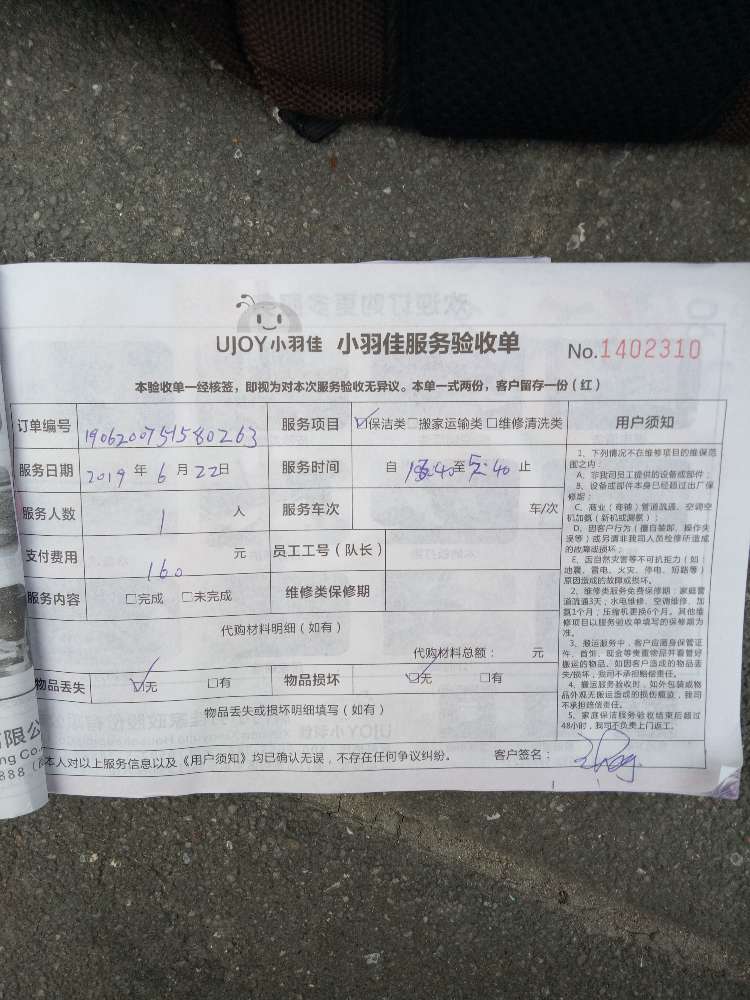 UJOY小羽佳 小羽佳服务验收单 No.1402310
本验收单一经核签，即视为对本次服务验收无异议。本单一式两份，客户留存一份（红）
订单编号 1906200751580263 服务项目 ☑保洁类□搬家运输类□维修清洗类 用户须知
服务日期 2019 年 6 月 22日 服务时间 自 :40至 :40 止
服务人数 1 人 服务车次 车/次
支付费用 160 元 员工工号（队长）
服务内容 □完成 □未完成 维修类保修期
代购材料明细（如有）
代购材料总额： 元
物品丢失 ☑无 □有 物品损坏 ☑无 □有
物品丢失或损坏明细填写（如有）
本人对以上服务信息以及《用户须知》均已确认无误，不存在任何争议纠纷。 客户签名：
1、下列情况不在维修项目的维保范
围之内：
A、非我司员工提供的设备或部件；
B、设备或部件本身已经超过出厂保
修期；
C、商业（商铺）管道疏通、空调空
机加氨（新机或漏氨）；
D、因客户行为（擅自装卸、操作失
误等）或另请非我司人员检修所造成
的故障或损坏；
E、因自然灾害等不可抗拒力（如：
地震、雷电、火灾、停电、短路等）
原因造成的故障或损坏。
2、维修类服务免费保修期：家庭管
道疏通3天，水电维修、空调维修、加
氨1个月；压缩机更换6个月。其他维
修项目以服务验收单填写的保修期为
准。
3、搬运服务中，客户应随身保管证
件、首饰、现金等贵重物品并看管好
搬运的物品。如因客户造成的物品丢
失/损坏，我司不承担赔偿责任。
4、搬运服务验收时，如外包装或物
品外观无搬运造成的损伤痕迹，我司
不承担赔偿责任。
5、家庭保洁服务验收结束后超过
48小时，我司不负责上门返工。
限公
ng Co
888